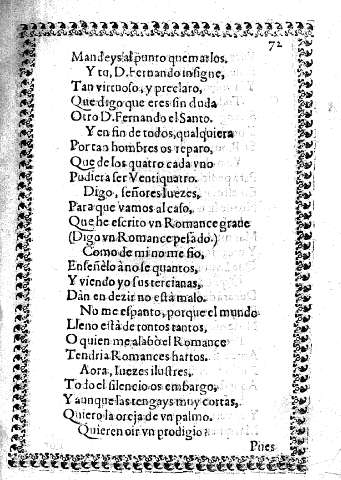 72
Mandeys al punto quemarlos.
Y tu, D. Fernando insigne,
Tan virtuoso, y preclaro,
Que digo que eres sin duda
Otro D. Fernando el Santo.
Y en fin de todos, qualquiera
Por tan hombres os reparo,
Que de los quatro cada vno
Pudiera ser Ventiquatro.
Digo, señores Iuezes,
Para que vamos al caso,
Que he escrito vn Romance graue
(Digo vn Romance pesado.)
Como de mi no me fio,
Enseñèlo à no se quantos,
Y viendo yo sus tercianas,
Dàn en dezir no està malo.
No me espanto, porque el mundo
Lleno està de tontos tantos,
O quien me alabò el Romance
Tendria Romances hartos.
Aora, Iuezes ilustres,
Todo el silencio os embargo,
Y aunque las tengays muy cortas,
Quiero la oreja de vn palmo.
Quieren oir vn prodigio?
Pues